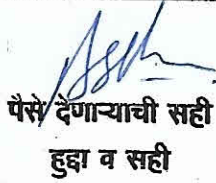 पैसे देणाऱ्याची सही
हुद्दा व सही